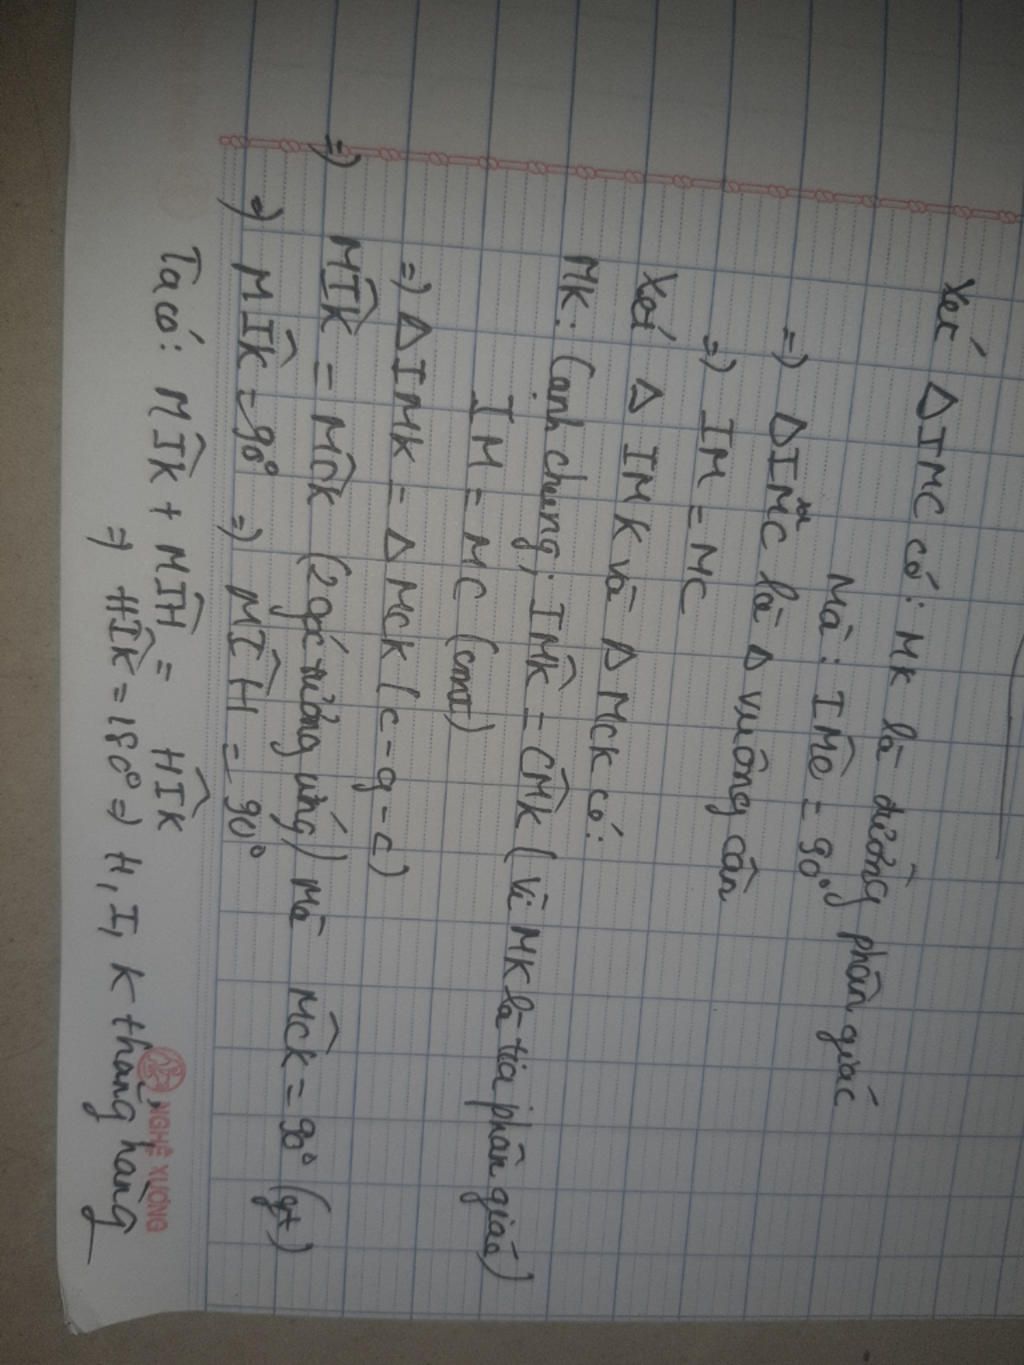 Xét ΔIMC có: MK là đường phân giác
Mà: IM̂C = 90°
=) ΔIMC là Δ vuông cân
=) IM = MC
Xét Δ IMK và Δ MCK có:
MK: Cạnh chung; IM̂K = CM̂K (vì MK là tia phân giác)
IM = MC (cmt)
=) ΔIMK = Δ MCK (c-g-c)
=) MÎK = MĈK (2 góc tương ứng) Mà MĈK = 90° (gt)
=) MÎK = 90° =) MÎH = 90°
Ta có: MÎK + MÎH = HÎK
=) HÎK = 180° =) H, I, K thẳng hàng
NGHỆ XƯƠNG